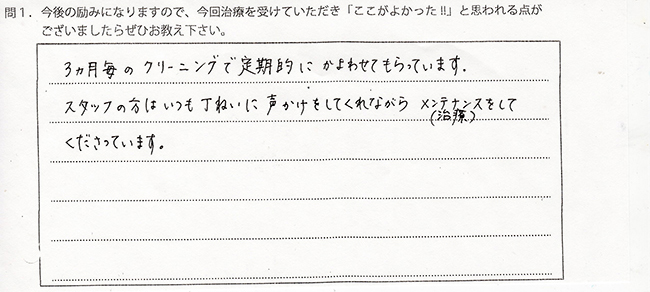 問1．今後の励みになりますので、今回治療を受けていただき「ここがよかった!!」と思われる点が
ございましたらぜひお教え下さい。
3ヵ月毎のクリーニングで定期的にかよわせてもらっています.
スタッフの方はいつも丁ねいに声かけをしてくれながらメンテナンスをして
(治療)
くださっています。